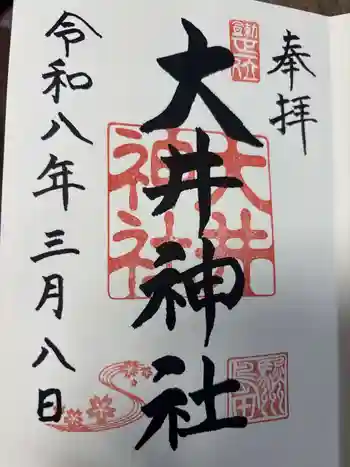 奉拝
大井神社
令和八年三月八日
大井
神社